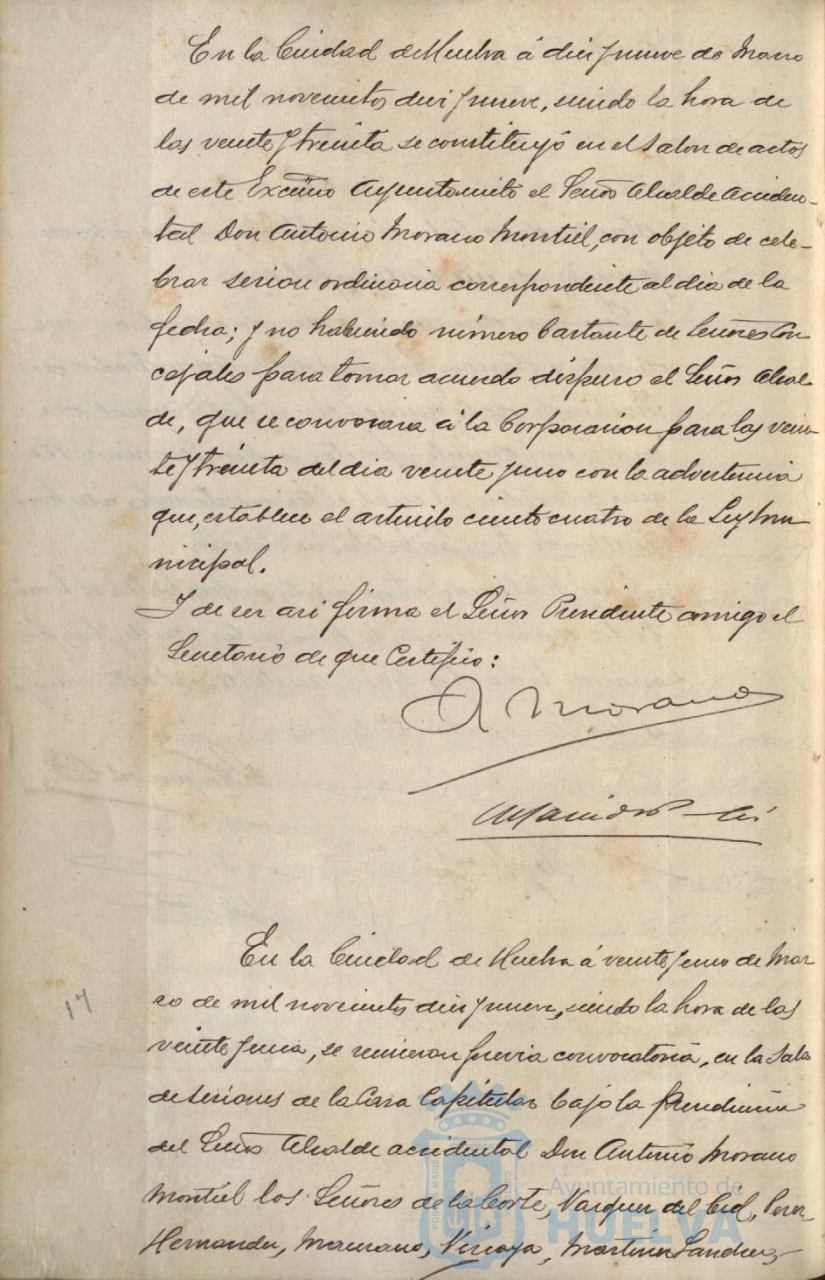 En la Ciudad de Huelva á diez y nueve de Marzo
de mil novecientos diez y nueve, siendo la hora de
las veinte y treinta se constituyó en el salon de actos
de este Excmo Ayuntamiento el Señor Alcalde Acciden-
tal Don Antonio Morano Montiel, con objeto de cele-
brar sesion ordinaria correspondiente al dia de la
fecha; y no habiendo número bastante de Señores Con
cejales para tomar acuerdo dispuso el Señor Alcal-
de, que se convocara á la Corporacion para las vein-
te y treinta del dia veinte y uno con la advertencia
que, establece el articulo ciento cuatro de la Ley Mu
nicipal.
Y de ser asi firma el Señor Presidente conmigo el
Secretario de que Certifico:
A Morano
En la Ciudad de Huelva á veinte y uno de Mar
zo de mil novecientos diez y nueve, siendo la hora de las
veinte y una, se reunieron previa convocatoria, en la Sala
de sesiones de la Casa Capitular bajo la Presidencia
del Señor Alcalde accidental Don Antonio Morano
Montiel los Señores de la Corte, Vazquez del Cid, Perez
Hernandez, Manzano, Vizcaya, Martinez Sanchez
17
Ayuntamiento de
HUELVA